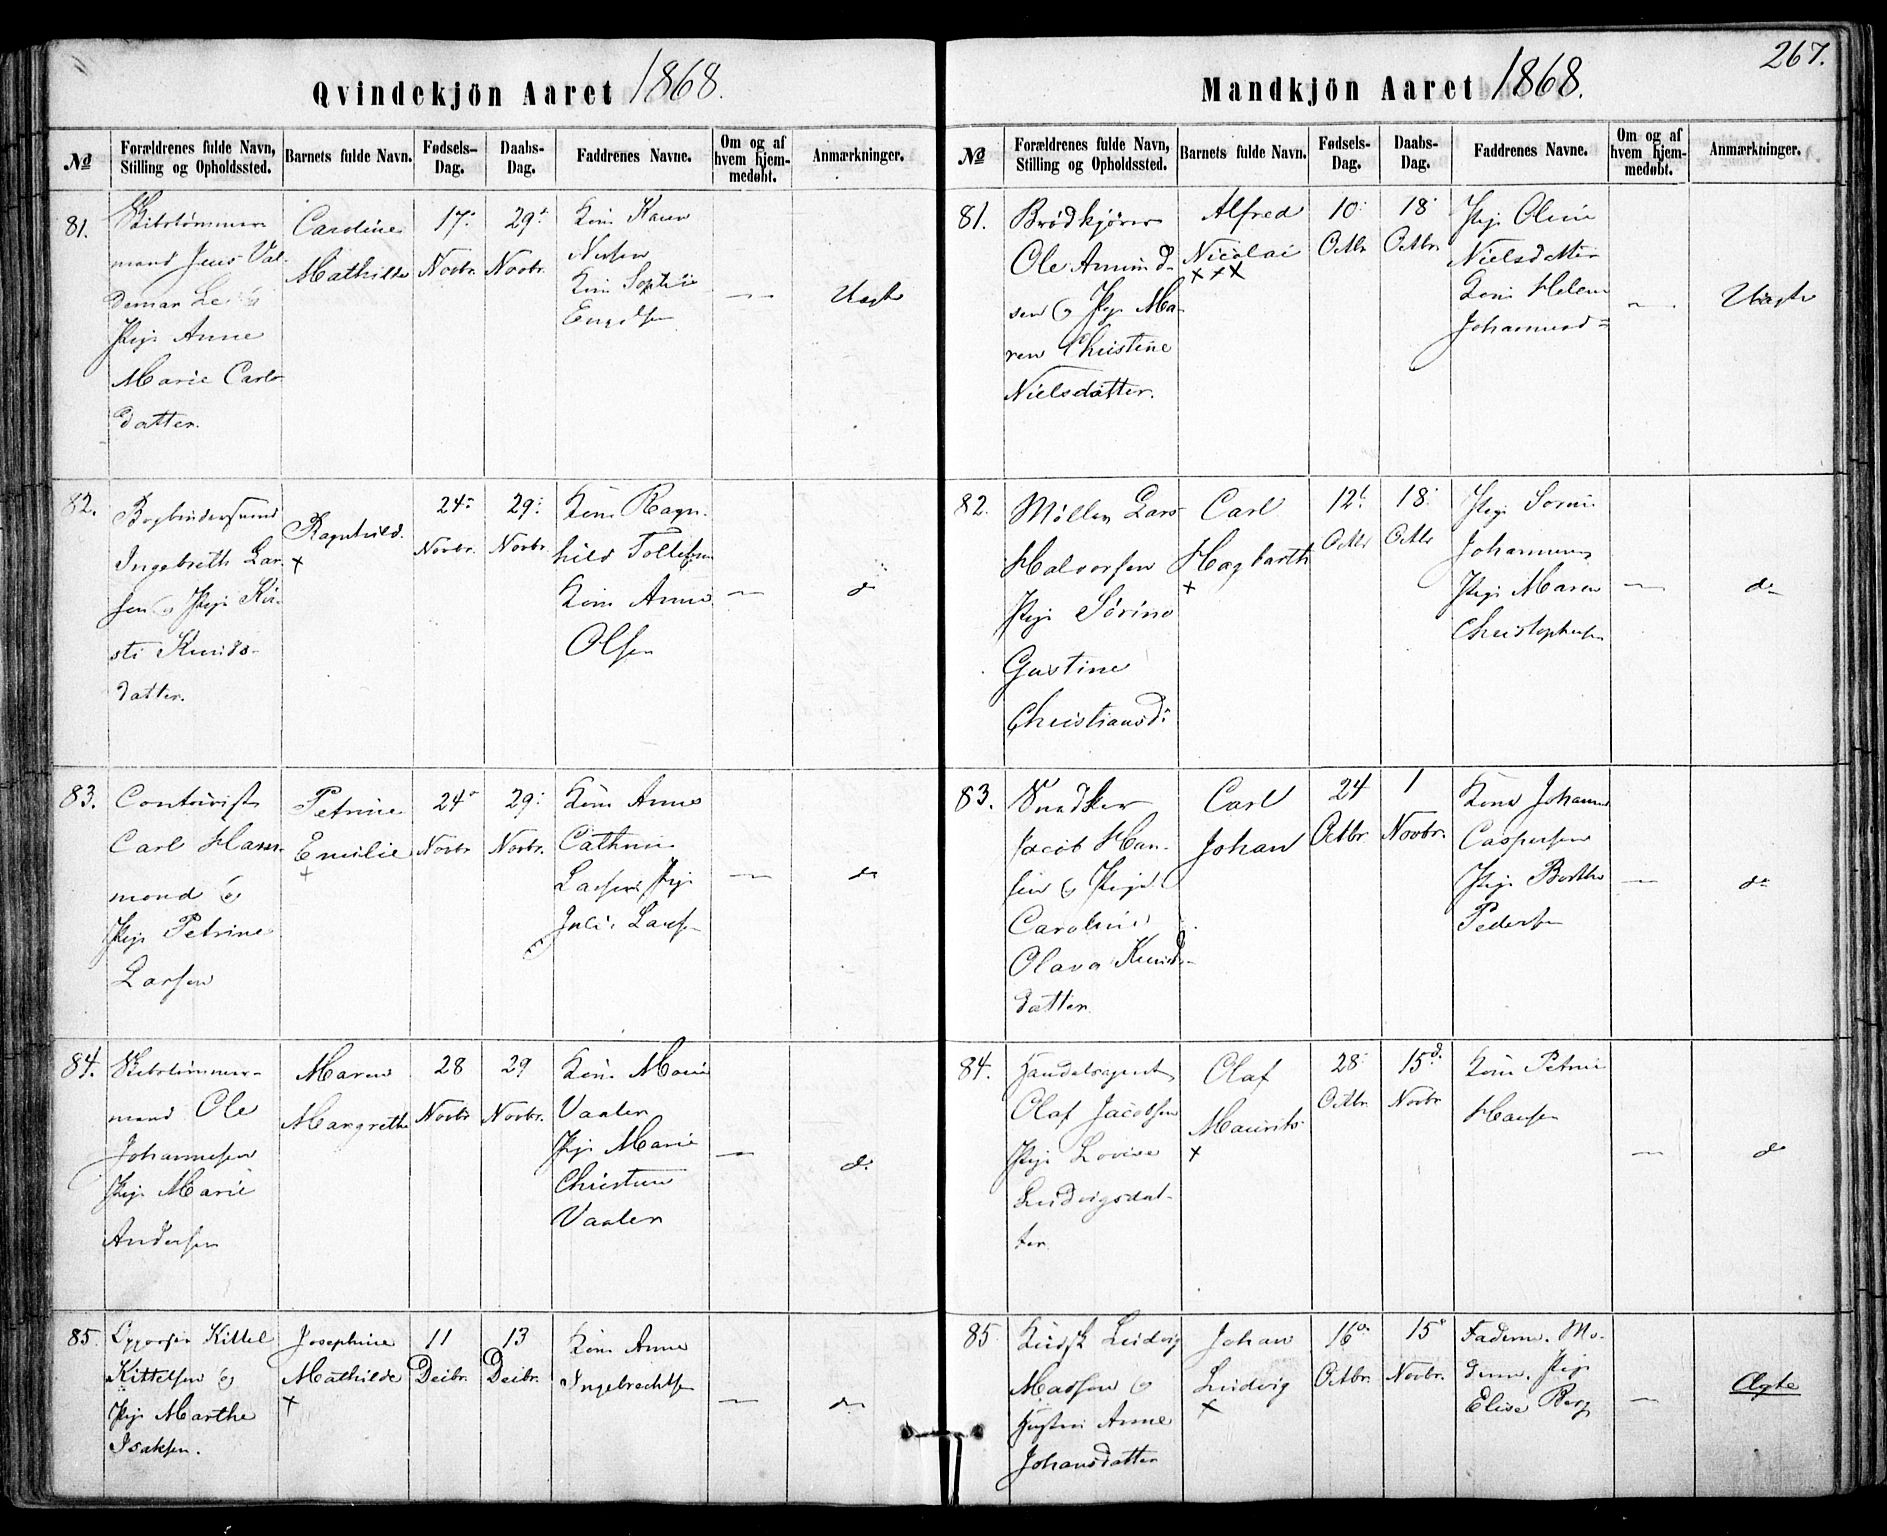 Qvindekjön Aaret 1868.
No
Forældrenes fulde Navn, Stilling og Opholdssted.
Barnets fulde Navn.
Fødsels-Dag.
Daabs-Dag.
Faddrenes Navne.
Om og af hvem hjem-medøbt.
Anmærkninger.
81.
Skibstømmer
mand Jens Val-
demar
Pige Anne
Marie Carls
datter.
Caroline
Mathilde
17de
Novbr.
29de
Novbr.
Kone Karen
Kone Sophie
—
Uægte
82.
Bogbindersvend
Ingebreth Lar-
sen og Pige Kir-
sti Knuds-
datter.
Ragnhild.
+
24de
Novbr.
29de
Novbr.
Kone Ragn-
hild Tollefsen
Kone Anne
Olsen
—
do
83.
Contorist
Carl Ham-
mond og
Pige Petrine
Larsen
Petrine
Emilie
+
24de
Novbr
29de
Novbr.
Kone Anne
Cathrine
Larsen Pige
Julie Larsen
—
do
84.
Skibstømmer-
mand Ole
Johannesen
Pige Marie
Andersen
Maren
Margrethe
28
Novbr
29
Novbr.
Kone Marie
Vaaler
Pige Marie
Christine
Vaaler
—
do
85.
Kittel
Kittelsen og
Pige Marthe
Isaksen.
Josephine
Mathilde
+
11
Decbr.
13
Decbr.
Kone Anne
Ingebrechtsen
—
do
267.
Mandkjön Aaret 1868.
No
Forældrenes fulde Navn, Stilling og Opholdssted.
Barnets fulde Navn.
Fødsels-Dag.
Daabs-Dag.
Faddrenes Navne.
Om og af hvem hjem-medøbt.
Anmærkninger.
81.
Brødkjører
Ole Amund-
sen og Pige Ma-
ren Christine
Nielsdatter.
Alfred
Nicolai
+++
10de
Octbr
18de
Octbr.
Pige Oline
Nielsdatter
Kone Helene
Johannesd=
—
Uægte
82.
Møller Lars
Halvorsen
Pige Sørine
Gustine
Christiansd:
Carl
Hagbarth
+
12te
Octbr
18de
Octbr
Pige Sørine
Johannesen
Pige Maren
Christophersen
—
do
83.
Snedker
Jacob Han-
sen og Pige
Caroline
Olava Knuds-
datter.
Carl
Johan
24
Octbr.
1
Novbr.
Kone Johanne
Caspersen
Pige Berthe
Pedersen
—
do
84.
Handelsagent
Olaf Jacobsen
Pige Lovise
Ludvigsdat-
ter.
Olaf
Maurits
+
28de
Octbr.
15de
Novbr
Kone Petrine
Hansen
—
do
85.
Kudsk Ludvig
Madsen og
Hustru Anne
Johansdatter
Johan
Ludvig
+
16de
Octbr.
15de
Novbr.
Faderen. Mo-
deren. Pige
Elise Berg
—
Ægte